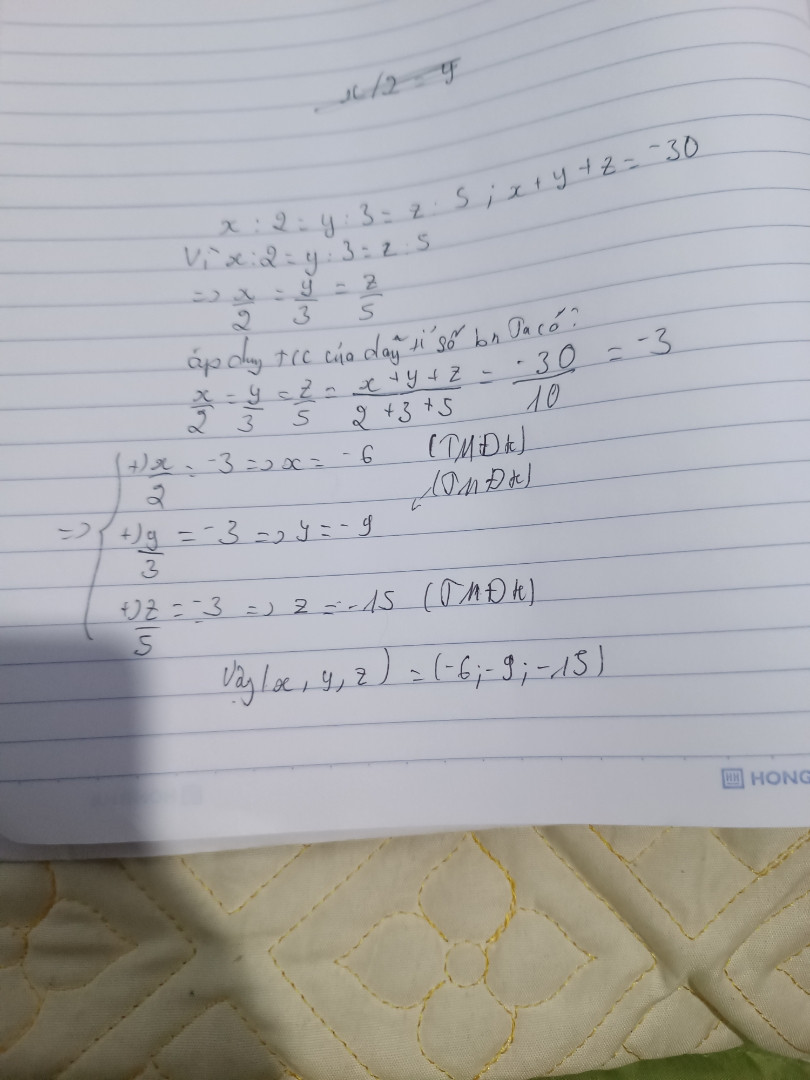 x/2 = y
x : 2 = y : 3 = z : 5 ; x + y + z = -30
Vì x : 2 = y : 3 = z : 5
=> x/2 = y/3 = z/5
áp dụng tcc của dãy tỉ số bn Ta có:
x/2 = y/3 = z/5 = x + y + z / 2 + 3 + 5 = -30/10 = -3
+) x/2 = -3 => x = -6 (TMĐK)
=> +) y/3 = -3 => y = -9 (TMĐK)
+) z/5 = -3 => z = -15 (TMĐK)
Vậy (x, y, z) = (-6; -9; -15)
HH HONG